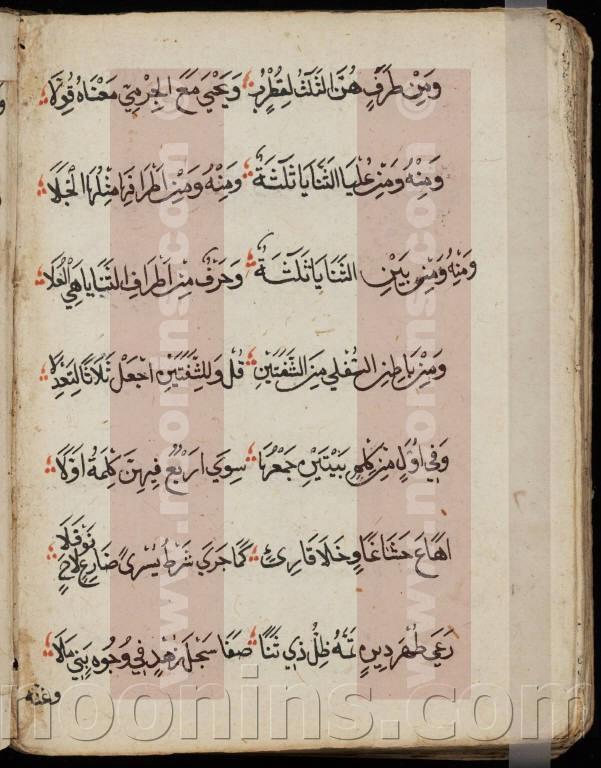 وَمِنْ طَرَفٍ هُنَّ الثَّلَاثُ لِقُطْرُبٍ وَيَحْيَى مَعَ الجِرْمِيِّ مَعْنَاهُ قُوِّلَا
وَمِنْهُ وَمِنْ عُلْيَا الثَّنَايَا ثَلَثَةٌ وَمِنْهُ وَمِنْ أَطْرَافِهَا مِثْلُهَا انْجَلَا
وَمِنْهُ وَمِنْ بَيْنِ الثَّنَايَا ثَلَثَةٌ وَحَرْفٌ مِنْ أَطْرَافِ الثَّنَايَا هِيَ الْعُلَا
وَمِنْ بَاطِنِ السُّفْلَى مِنَ الشَّفَتَيْنِ قُلْ وَلِلشَّفَتَيْنِ اجْعَلْ ثَلَاثًا لِتَعْدِلَا
وَفِي أَوَّلٍ مِنْ كِلْمِ بَيْتَيْنِ جَمْعُهَا سِوَى أَرْبَعٍ فِيهِنَّ كِلْمَةٌ أَوَّلَا
أَهَاعَ حَشَا غَاوٍ خَلَا قَارِئٍ كَمَا جَرَى شَرْطُ يُسْرَى ضَارِعٍ لَاحَ نَوْفَلَا
رَعَى طُهْرَ دِينٍ تَمَّهُ ظِلُّ ذِي ثَنَا صَفَا سَجْلُ زُهْدٍ فِي وُجُوهِ بَنِي مَلَا
وغنه
noonins.com
www.noonins.com ©
www.noonins.com ©